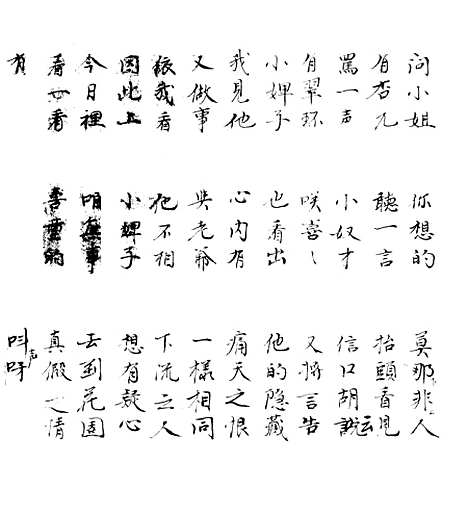 问小姐 你想的 莫那非人
有杏元 聽一言 抬頭看見
罵一声 小奴才 信口胡説云
有翠环 咲喜〻 又将言告
小婢子 也看出 他的隐藏
我見他 心内有 痛天之恨
又做事 與老爺 一樣相同
依我看 他不相 下流之人
因此上 小婢子 想有疑心
今日裡 咱無事 去到花园
看一看 喜童的 真假之情
有